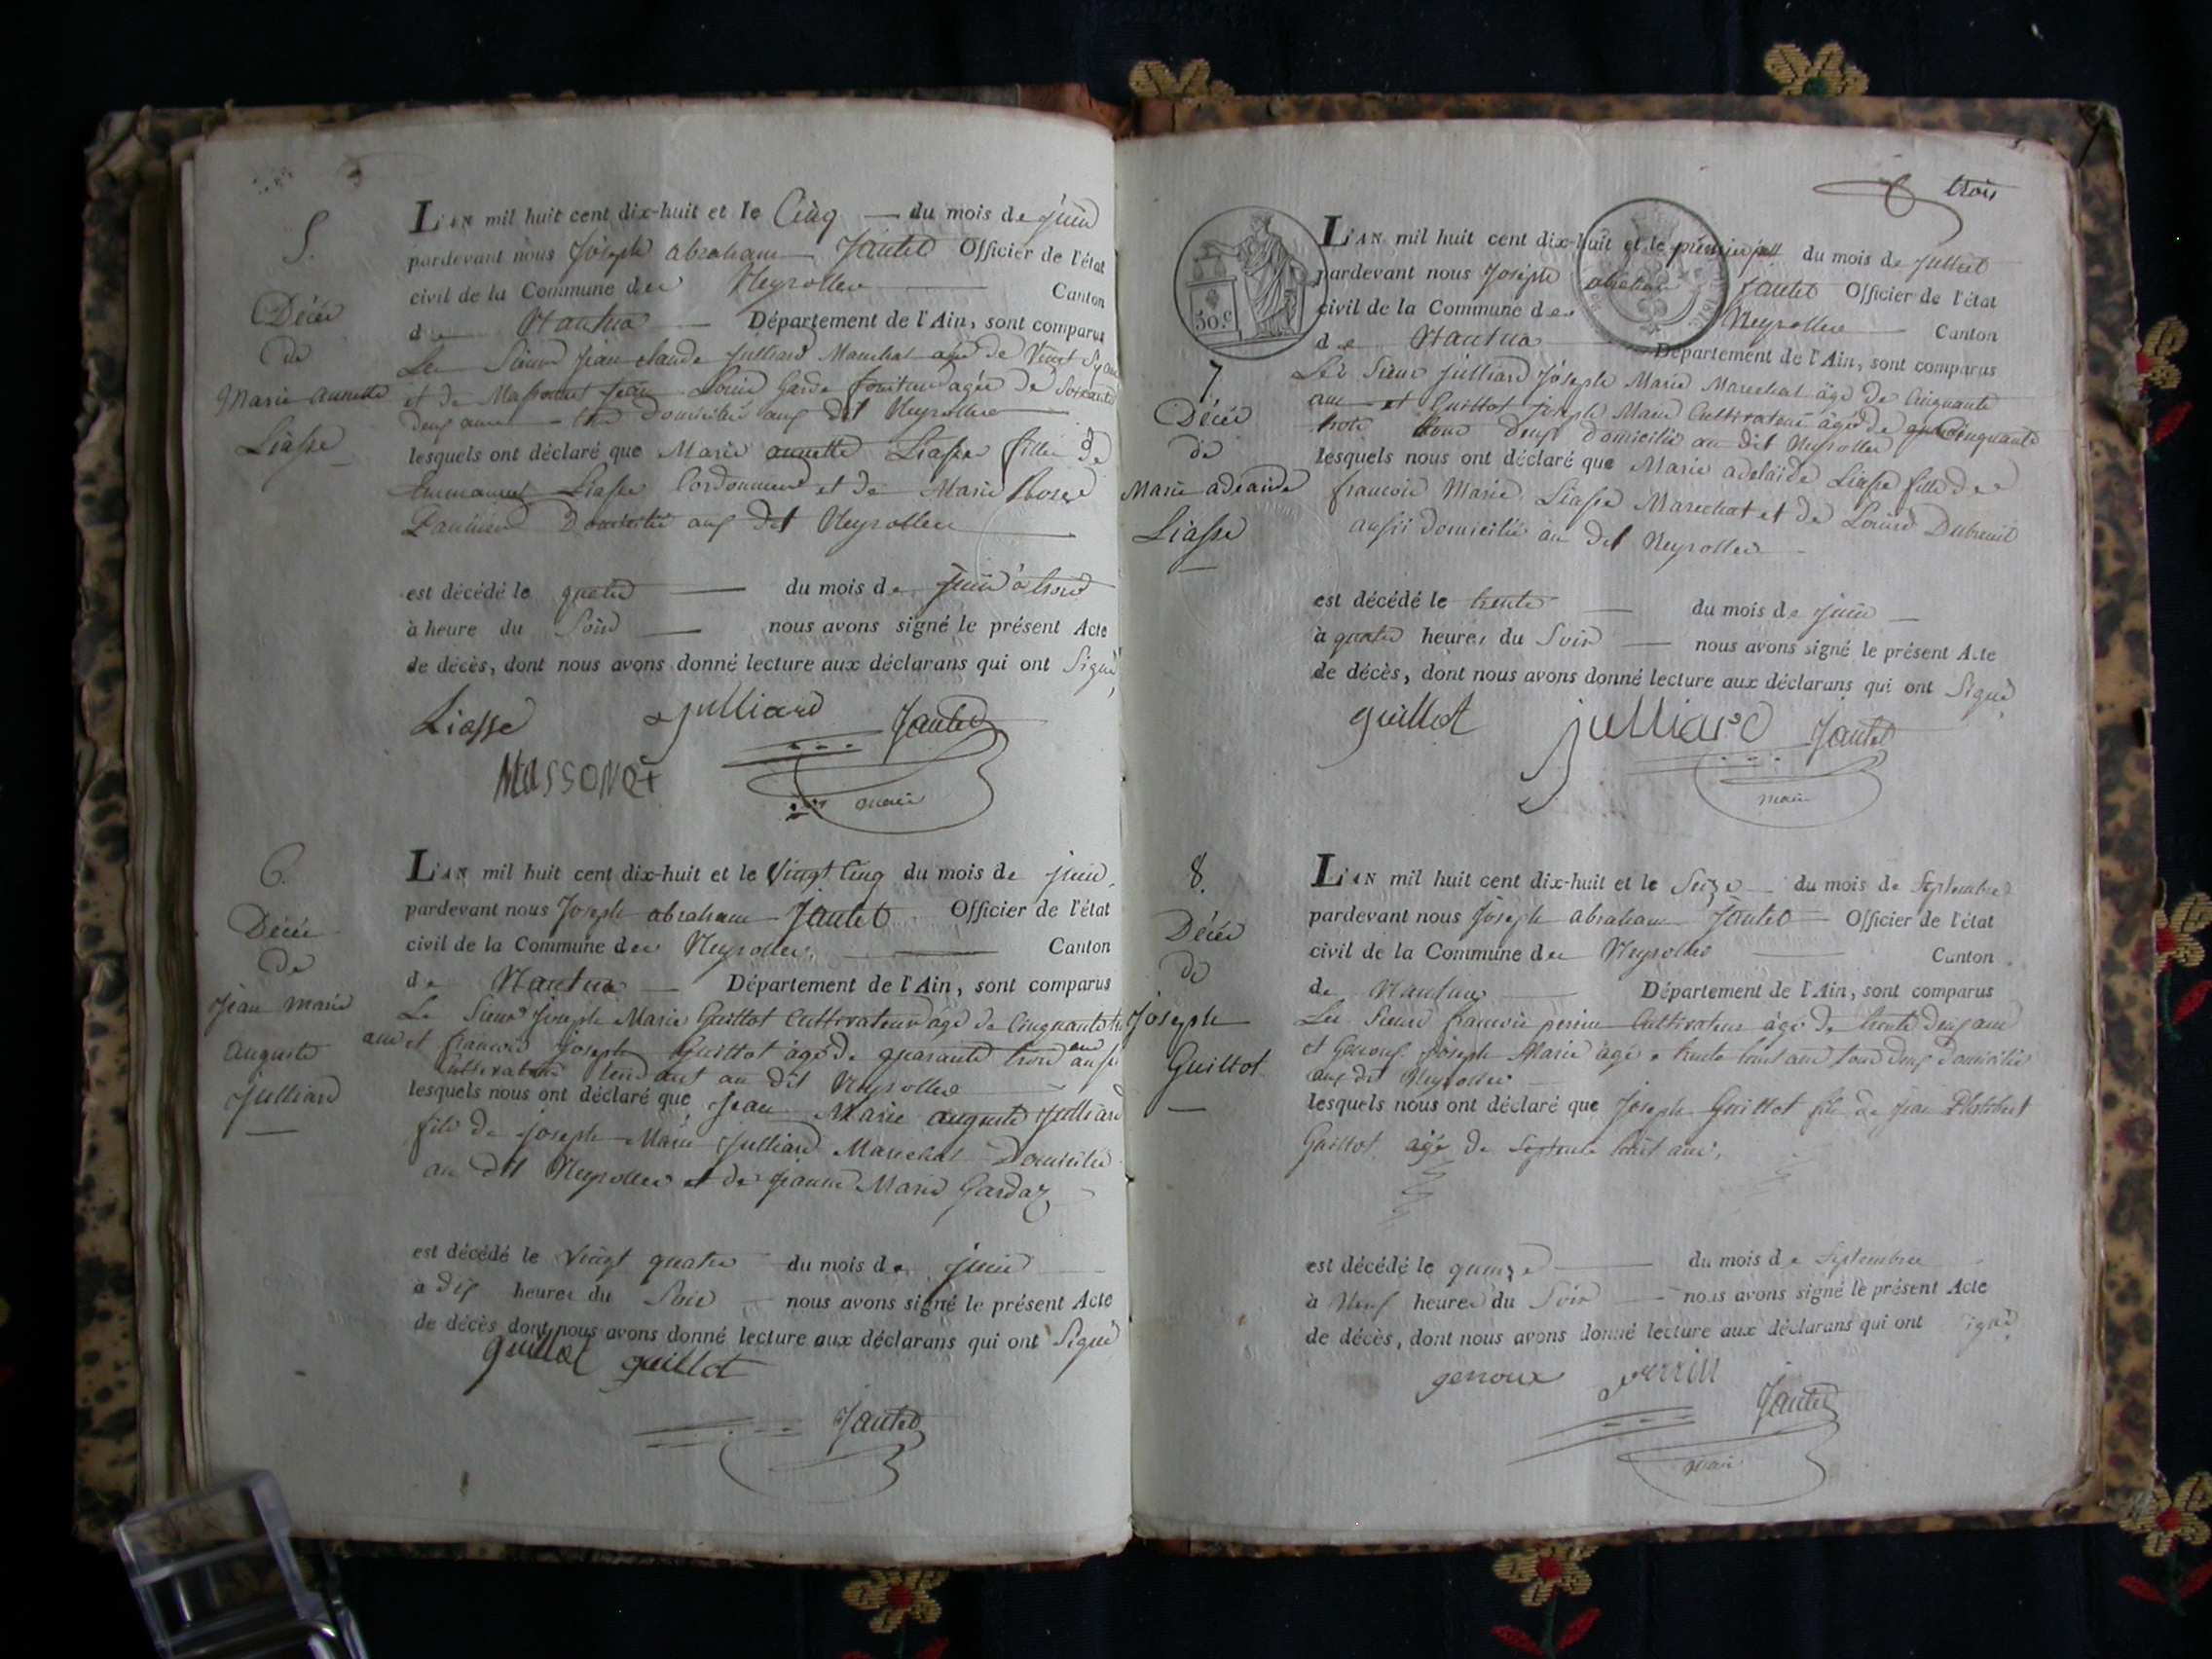 5.
Décès
de
Marie annette
Liasse
L'AN mil huit cent dix-huit et le Cinq du mois de juin
pardevant nous Joseph abraham Jantet Officier de l'état
civil de la Commune des Neyrolles Canton
de Nantua Département de l'Ain, sont comparus
Les Sieurs Jean claude Julliard Marechal agé de Vingt
et de Massonet Jean Louis Garde agée de Soixante
deux ans domiciliés aux dit Neyrolles
lesquels ont déclaré que Marie annette Liasse fille de
Emmanuel Liasse Cordonnier et de Marie Rose
Domiciliés aux dit Neyrolles
est décédé le quatre du mois de juin à trois
à heure du Soir nous avons signé le présent Acte
de décès, dont nous avons donné lecture aux déclarans qui ont Signé
Liasse Julliard Jantet
Massonet
maire
6.
Décès
de
Jean marie
Auguste
Julliard
L'AN mil huit cent dix-huit et le Vingt Cinq du mois de juin
pardevant nous Joseph abraham Jantet Officier de l'état
civil de la Commune des Neyrolles Canton
de Nantua Département de l'Ain, sont comparus
Le Sieur Joseph Marie Guillot Cultivateur âgé de Cinquante
ans et francois Joseph Guillot âgé de quarante trois ans
Cultivateur au dit Neyrolles
lesquels nous ont déclaré que Jean Marie auguste Julliard
fils de joseph Marie Julliard Marechal Domicilié
au dit Neyrolles et de jeanne Marie Gardaz
est décédé le Vingt quatre du mois de juin
à dix heures du Soir nous avons signé le présent Acte
de décès dont nous avons donné lecture aux déclarans qui ont Signé
guillot guillot
Jantet
trois
50.c
7.
Décès
de
Marie adelaide
Liasse
L'AN mil huit cent dix-huit et le premier du mois de Juillet
pardevant nous Joseph abraham Jantet Officier de l'état
civil de la Commune des Neyrolles Canton
de Nantua Département de l'Ain, sont comparus
Les Sieurs julliard Joseph Marie Marechal âgé de Cinquante
ans et Guillot joseph Marie Cultivateur âgé de cinquante
trois tous deux domiciliés au dit Neyrolles
lesquels nous ont déclaré que Marie adelaïde Liasse fille de
francois Marie Liasse Marechal et de Louise Dubreuil
aussi domiciliés au dit Neyrolles
est décédé le trente du mois de juin
à quatre heures du Soir nous avons signé le présent Acte
de décès, dont nous avons donné lecture aux déclarans qui ont Signé
guillot julliard Jantet
maire
8.
Décès
de
Joseph
Guillot
L'AN mil huit cent dix-huit et le Seize du mois de Septembre
pardevant nous Joseph abraham Jantet Officier de l'état
civil de la Commune des Neyrolles Canton
de Nantua Département de l'Ain, sont comparus
Les Sieurs francois perrin Cultivateur âgé de trente deux ans
et Genoux joseph Marie âgé trente huit ans tous deux domiciliés
aux dit Neyrolles
lesquels nous ont déclaré que Joseph Guillot fils de Jean Philibert
Guillot âgé de Septente huit ans,
est décédé le quinze du mois de Septembre
à Neuf heures du Soir nous avons signé le présent Acte
de décès, dont nous avons donné lecture aux déclarans qui ont signé
genoux perrin
Jantet
maire